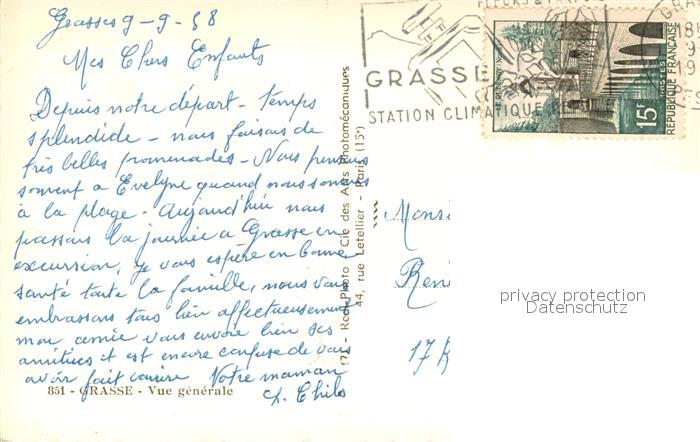 Grasse 9-9-58
Mes Chers Enfants
Depuis notre départ - temps
splendide - nous faisons de
très belles promenades - Nous pensons
souvent a Evelyne quand nous sommes
à la plage - Aujourd'hui nous
passons la journée a Grasse en
excursion, je vous espère en bonne
santé toute la famille, nous vous
embrassons tous bien affectueusement
mon amie vous envoie bien ses
amitiés et est encore confuse de vous
avoir fait courir Votre maman
851 - GRASSE - Vue générale
(7) - Real-Photo - Cie des Arts Photomécaniques
44, rue Letellier - Paris (15e)
GRASSE
STATION CLIMATIQUE
15F
POSTES
REPUBLIQUE FRANÇAISE
Monsi
René
17
privacy protection
Datenschutz